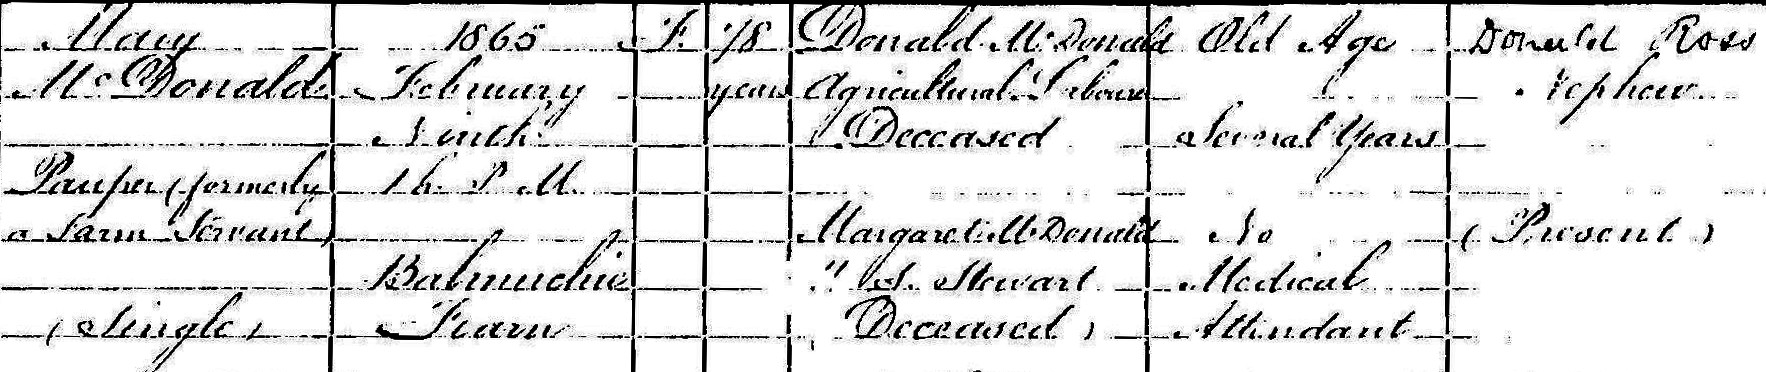 Mary
McDonald
Pauper (formerly
a Farm Servant)
(Single)
1865
February
Ninth
1 h. P. M.
Balmuchie
Fearn
F.
78
years
Donald McDonald
Agricultural Labourer
(Deceased
Margaret McDonald
" S. Stewart
(Deceased)
Old Age
Several Years
No
Medical
Attendant
Donald Ross
Nephew
(Present)